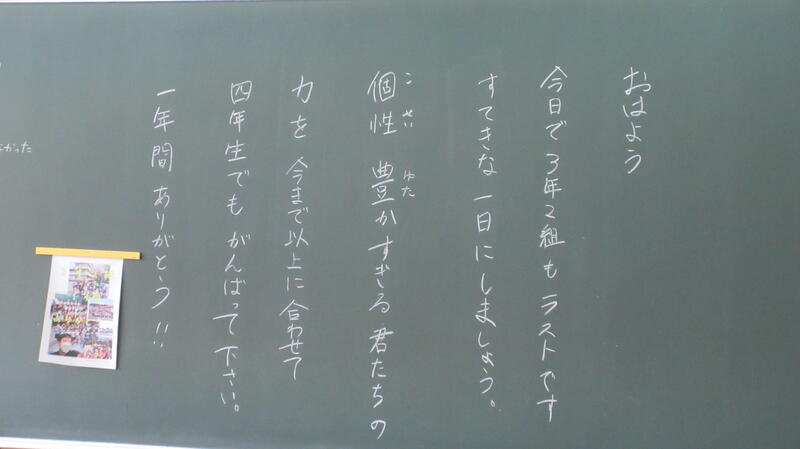 おはよう
今日で3年2組もラストです
すてきな一日にしましょう。
個性 豊かすぎる君たちの
こ せい ゆた
力を 今まで以上に合わせて
四年生でもがんばって下さい。
一年間ありがとう!!
かった